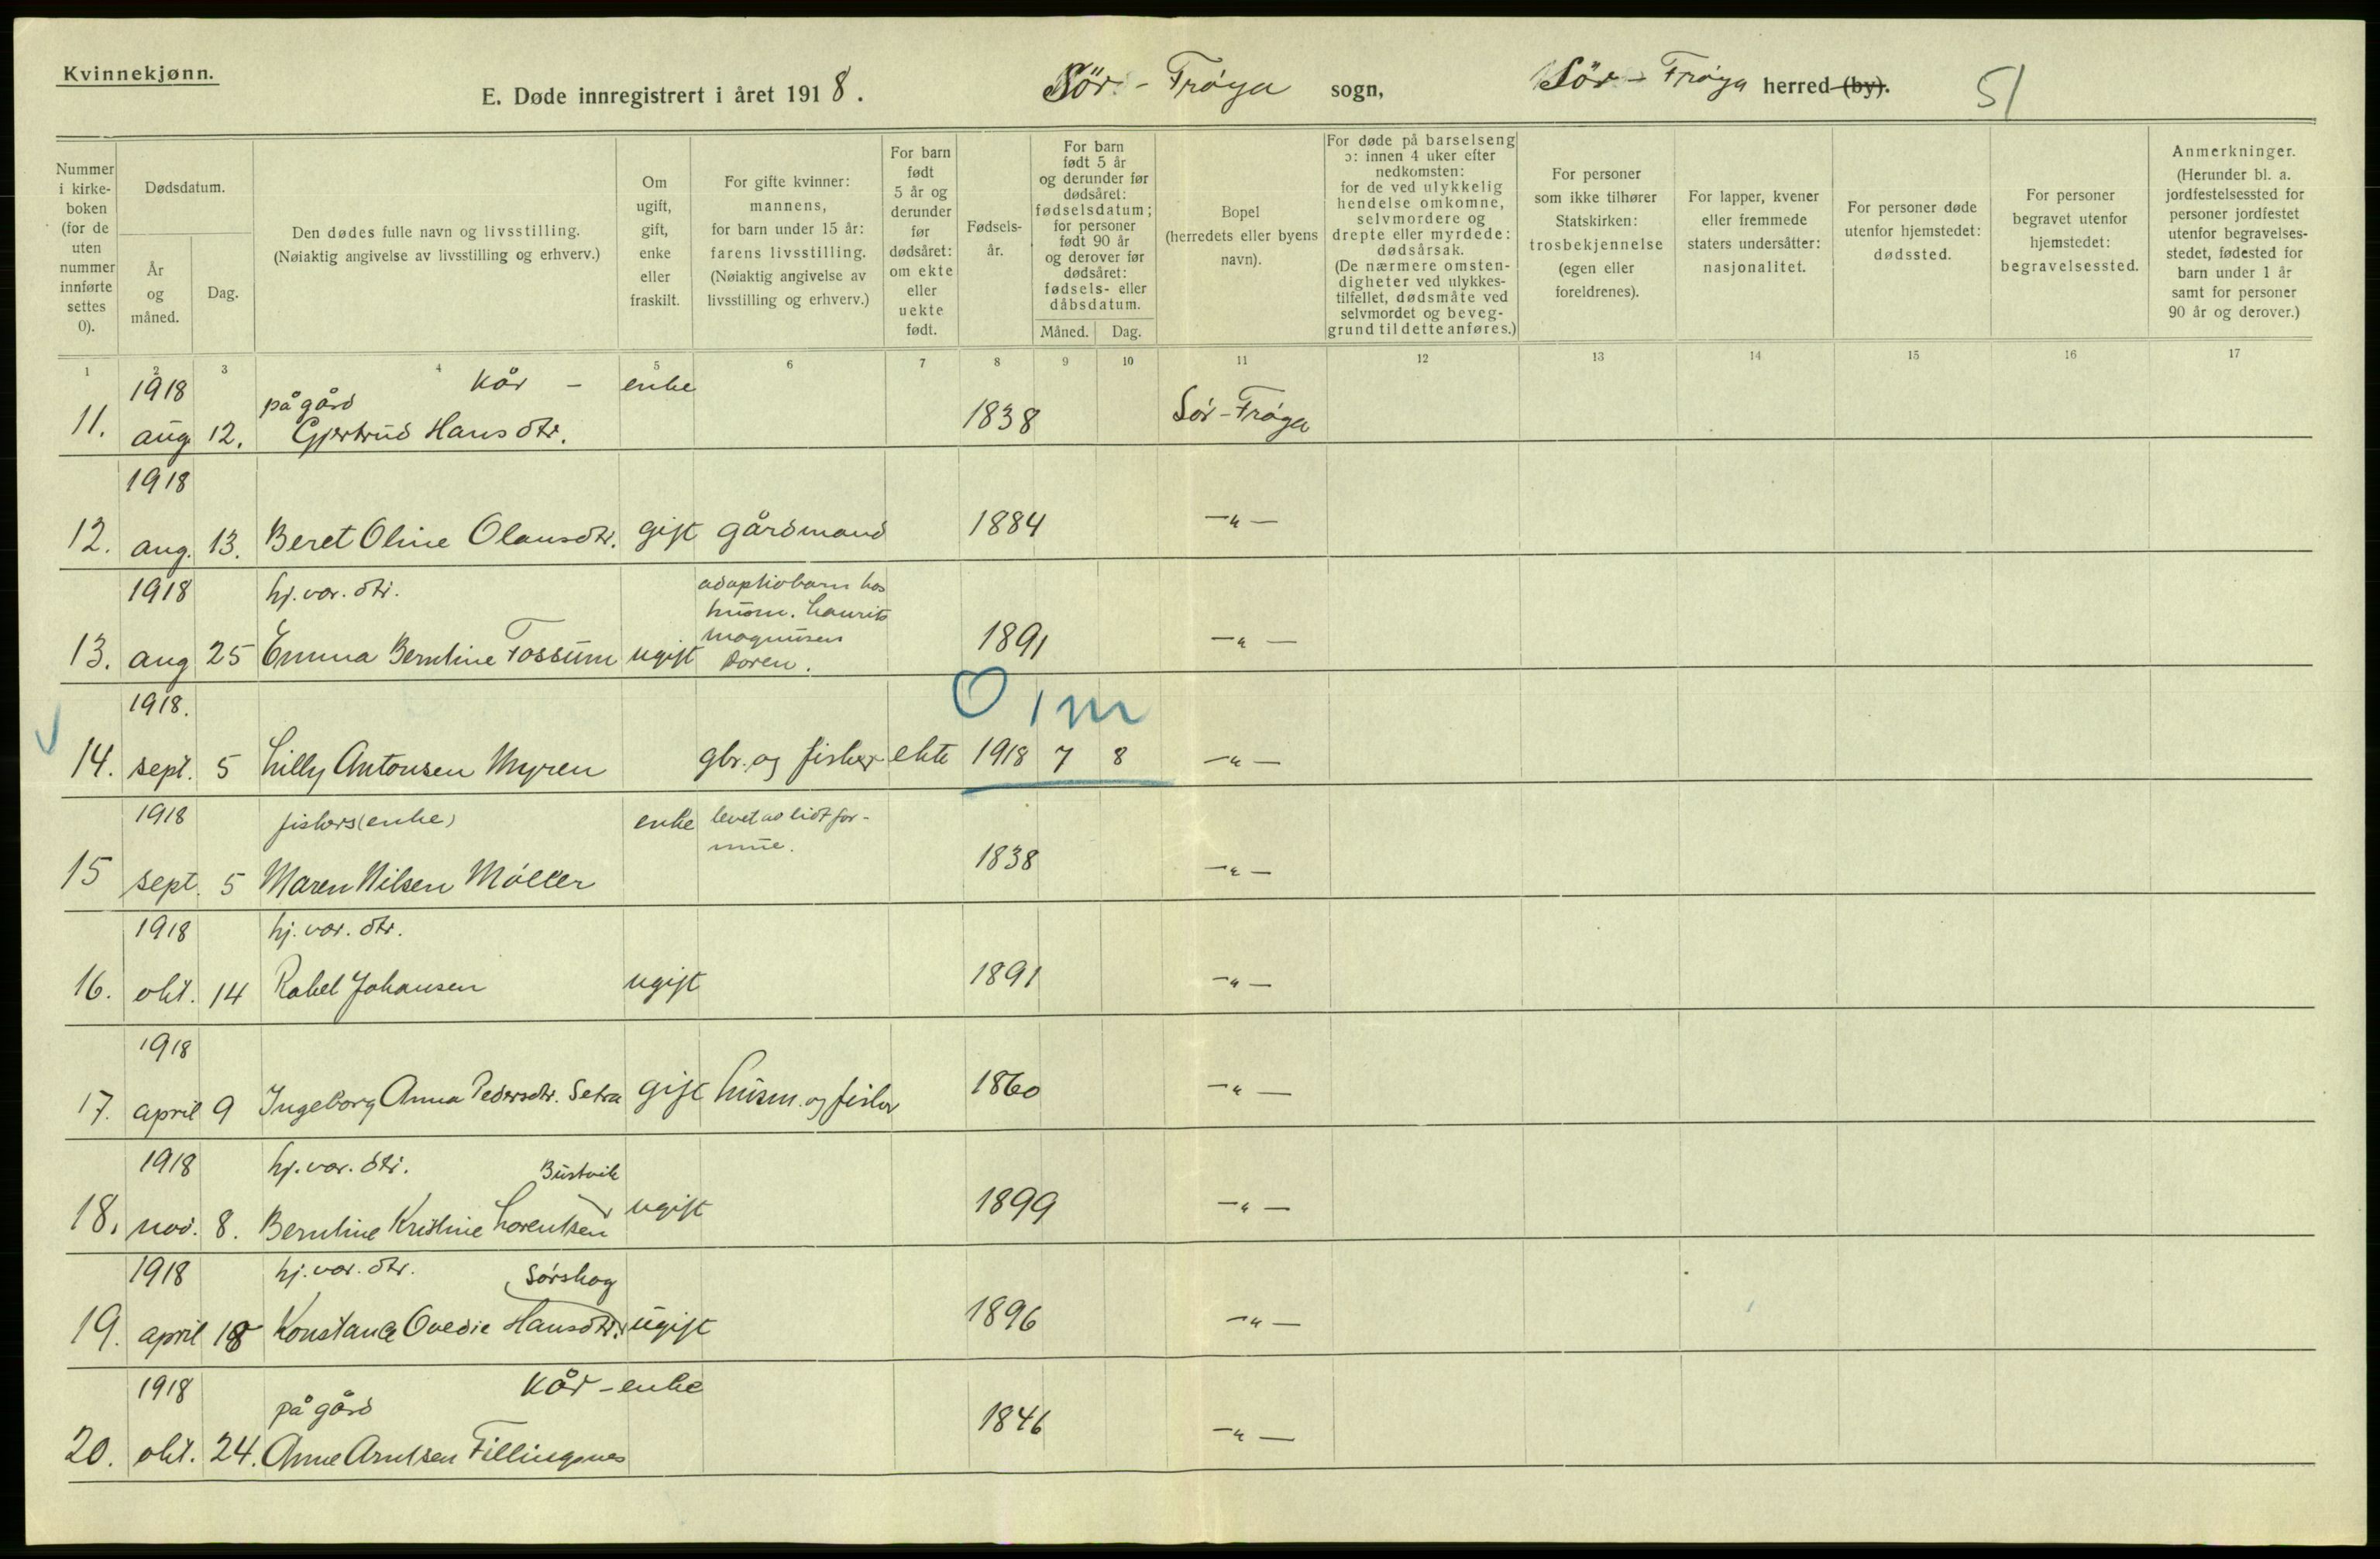 Kvinnekjønn.
E. Døde innregistrert i året 1918. Sör-Frøya sogn, Sör-Frøya herred (by). 51
Nummer i kirkeboken (for de uten nummer innførte settes 0).
Dødsdatum.
År og måned.
Dag.
Den dødes fulle navn og livsstilling.
(Nøiaktig angivelse av livsstilling og erhverv.)
Om ugift, gift, enke eller fraskilt.
For gifte kvinner: mannens, for barn under 15 år: farens livsstilling. (Nøiaktig angivelse av livsstilling og erhverv.)
For barn født 5 år og derunder før dødsåret: om ekte eller uekte født.
Fødselsår.
For barn født 5 år og derunder før dødsåret: fødselsdatum; for personer født 90 år og derover før dødsåret: fødsels- eller dåbsdatum.
Måned. Dag.
Bopel (herredets eller byens navn).
For døde på barselseng ɔ: innen 4 uker efter nedkomsten: for de ved ulykkelig hendelse omkomne, selvmordere og drepte eller myrdede: dødsårsak. (De nærmere omstendigheter ved ulykkestilfellet, dødsmåte ved selvmordet og beveggrund til dette anføres.)
For personer som ikke tilhører Statskirken: trosbekjennelse (egen eller foreldrenes).
For lapper, kvener eller fremmede staters undersåtter: nasjonalitet.
For personer døde utenfor hjemstedet: dødssted.
For personer begravet utenfor hjemstedet: begravelsessted.
Anmerkninger. (Herunder bl. a. jordfestelsessted for personer jordfestet utenfor begravelsesstedet, fødested for barn under 1 år samt for personer 90 år og derover.)
1 2 3 4 5 6 7 8 9 10 11 12 13 14 15 16 17
1918 på gård kår - enke
11. aug 12. Gjertrud Hansdtr. 1838 Sör-Frøya
1918
12. aug. 13. Beret Oline Olausdtr. gift gårdmand 1884 -"-
1918 hj. vær. dtr. adoptivbarn hos husm. Laurits Magnusen Doren.
13. aug 25 Emma Berntine Fossum ugift 1891 -"-
0 1 m
1918.
14. sept. 5 Lilly Antonsen Myren gbr. og fisker ekte 1918 7 8 -"-
1918 fiskers (enke) enke levet av lidt formue.
15 sept. 5 Maren Nilsen Møller 1838 -"-
1918 hj. vær. dtr.
16. okt. 14 Rakel Johansen ugift 1891 -"-
1918
17. april 9 Ingeborg Anna Pedersdtr. Setra gift husm. og fisker 1860 -"-
1918 hj. vær. dtr. Bustvik
18. nov. 8. Berntine Kristine Lorentsen ugift 1899 -"-
1918 hj. vær. dtr. Sørskog
19. april 18 Konstance Ovedie Hansdtr. ugift 1896 -"-
1918 på gård kår - enke
20. okt. 24. Anne Arntsen Fillingsnes 1846 -"-